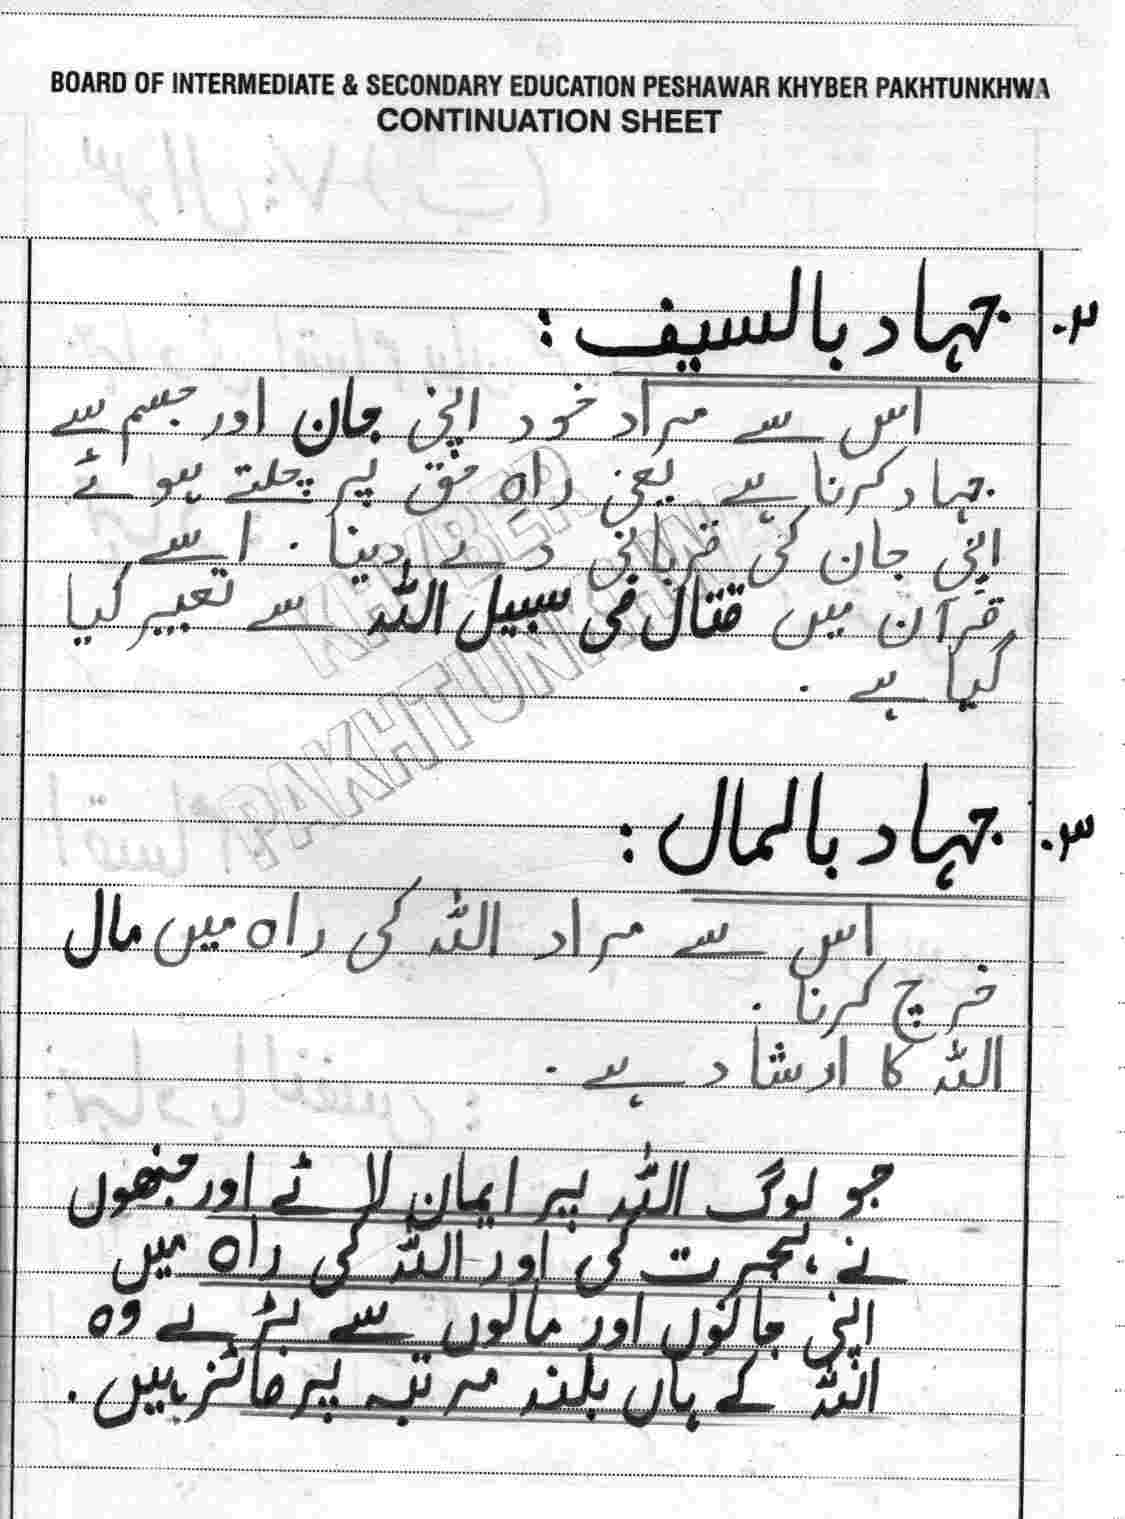 BOARD OF INTERMEDIATE & SECONDARY EDUCATION PESHAWAR KHYBER PAKHTUNKHWA
CONTINUATION SHEET
۲. جہاد بالسیف :
اس سے مراد خود اپنی جان اور جسم سے
جہاد کرنا ہے یعنی راہ حق پر چلتے ہوئے
اپنی جان کی قربانی دے دینا . اسے
قرآن میں قتال فی سبیل اللہ سے تعبیر کیا
گیا ہے .
KHYBER
PAKHTUNKHWA
۳. جہاد بالمال :
اس سے مراد اللہ کی راہ میں مال
خرچ کرنا .
اللہ کا ارشاد ہے .
جو لوگ اللہ پر ایمان لائے اور جنھوں
نے ہجرت کی اور اللہ کی راہ میں
اپنی جانوں اور مالوں سے لڑے وہ
اللہ کے ہاں بلند مرتبہ پر فائز ہیں .